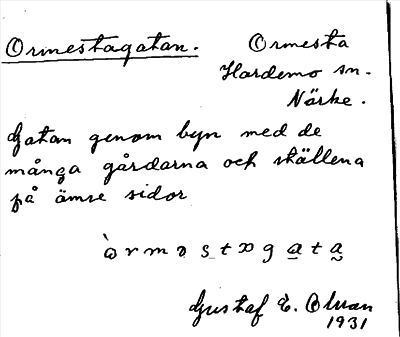 Ormestagatan. Ormesta
Hardemo sn.
Närke.
Gatan genom byn med de
många gårdarna och ställena
på ömse sidor
Gustaf E.
1931